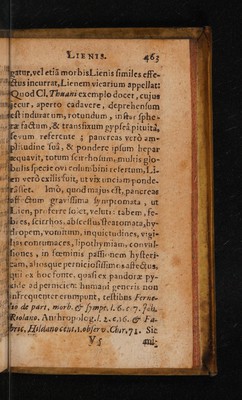 LIENIS. 463
gatur, vel etiā morbis Lienis similes effe-
ctus incurrat, Lienem vicarium appellat:
Quod Cl. Thuani exemplo docet, cujus
jecur, aperto cadavere, deprehensum
est induratum, rotundum, instar sphæ-
ræ factum, & transfixum gypseâ pituitâ,
pancreas verò am-
plitudine suâ, & pondere ipsum hepar
æquavit, totum scirrhosum, multis glo-
bulis specie ovi columbini refertum, Li-
en verò exilis fuit, ut vix unciam ponde-
rasset. Imò, quod majus est, pancreas
affectum gravissima symptomata, ut
Lien, proferre solet, veluti: tabem, fe-
bres, scirrhos, abscessus, steatomata, hy-
dropem, vomitum, inquietudines, vigi-
lias contumaces, lipothymiam, convul-
siones, in fœminis passionem hysteri-
cam, aliosque perniciosissimos affectus,
qui ex hoc fonte, quasi ex pandoræ py-
xide ad perniciem humani generis non
infrequenter erumpunt, testibus Ferne-
lio de part. morb. & sympt. l. 6. c. 7. Joh.
Riolano, Anthropolog. l. 2. c. 16. & Fa-
bric. Hildano cent. 1. observ. Chir. 71. Sic
V 5 qui-